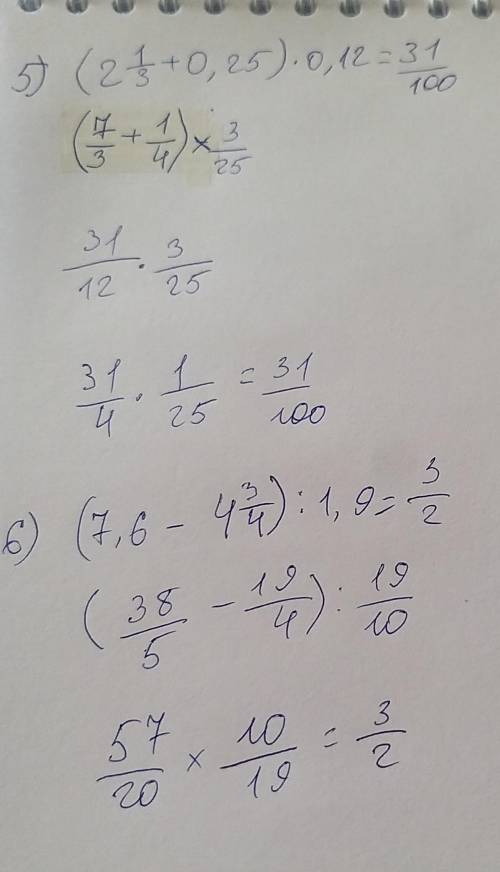 5) (2 1/3 + 0,25) · 0,12 = 31/100
(7/3 + 1/4) × 3/25
31/12 · 3/25
31/4 · 1/25 = 31/100
6) (7,6 - 4 3/4) : 1,9 = 3/2
(38/5 - 19/4) : 19/10
57/20 × 10/19 = 3/2